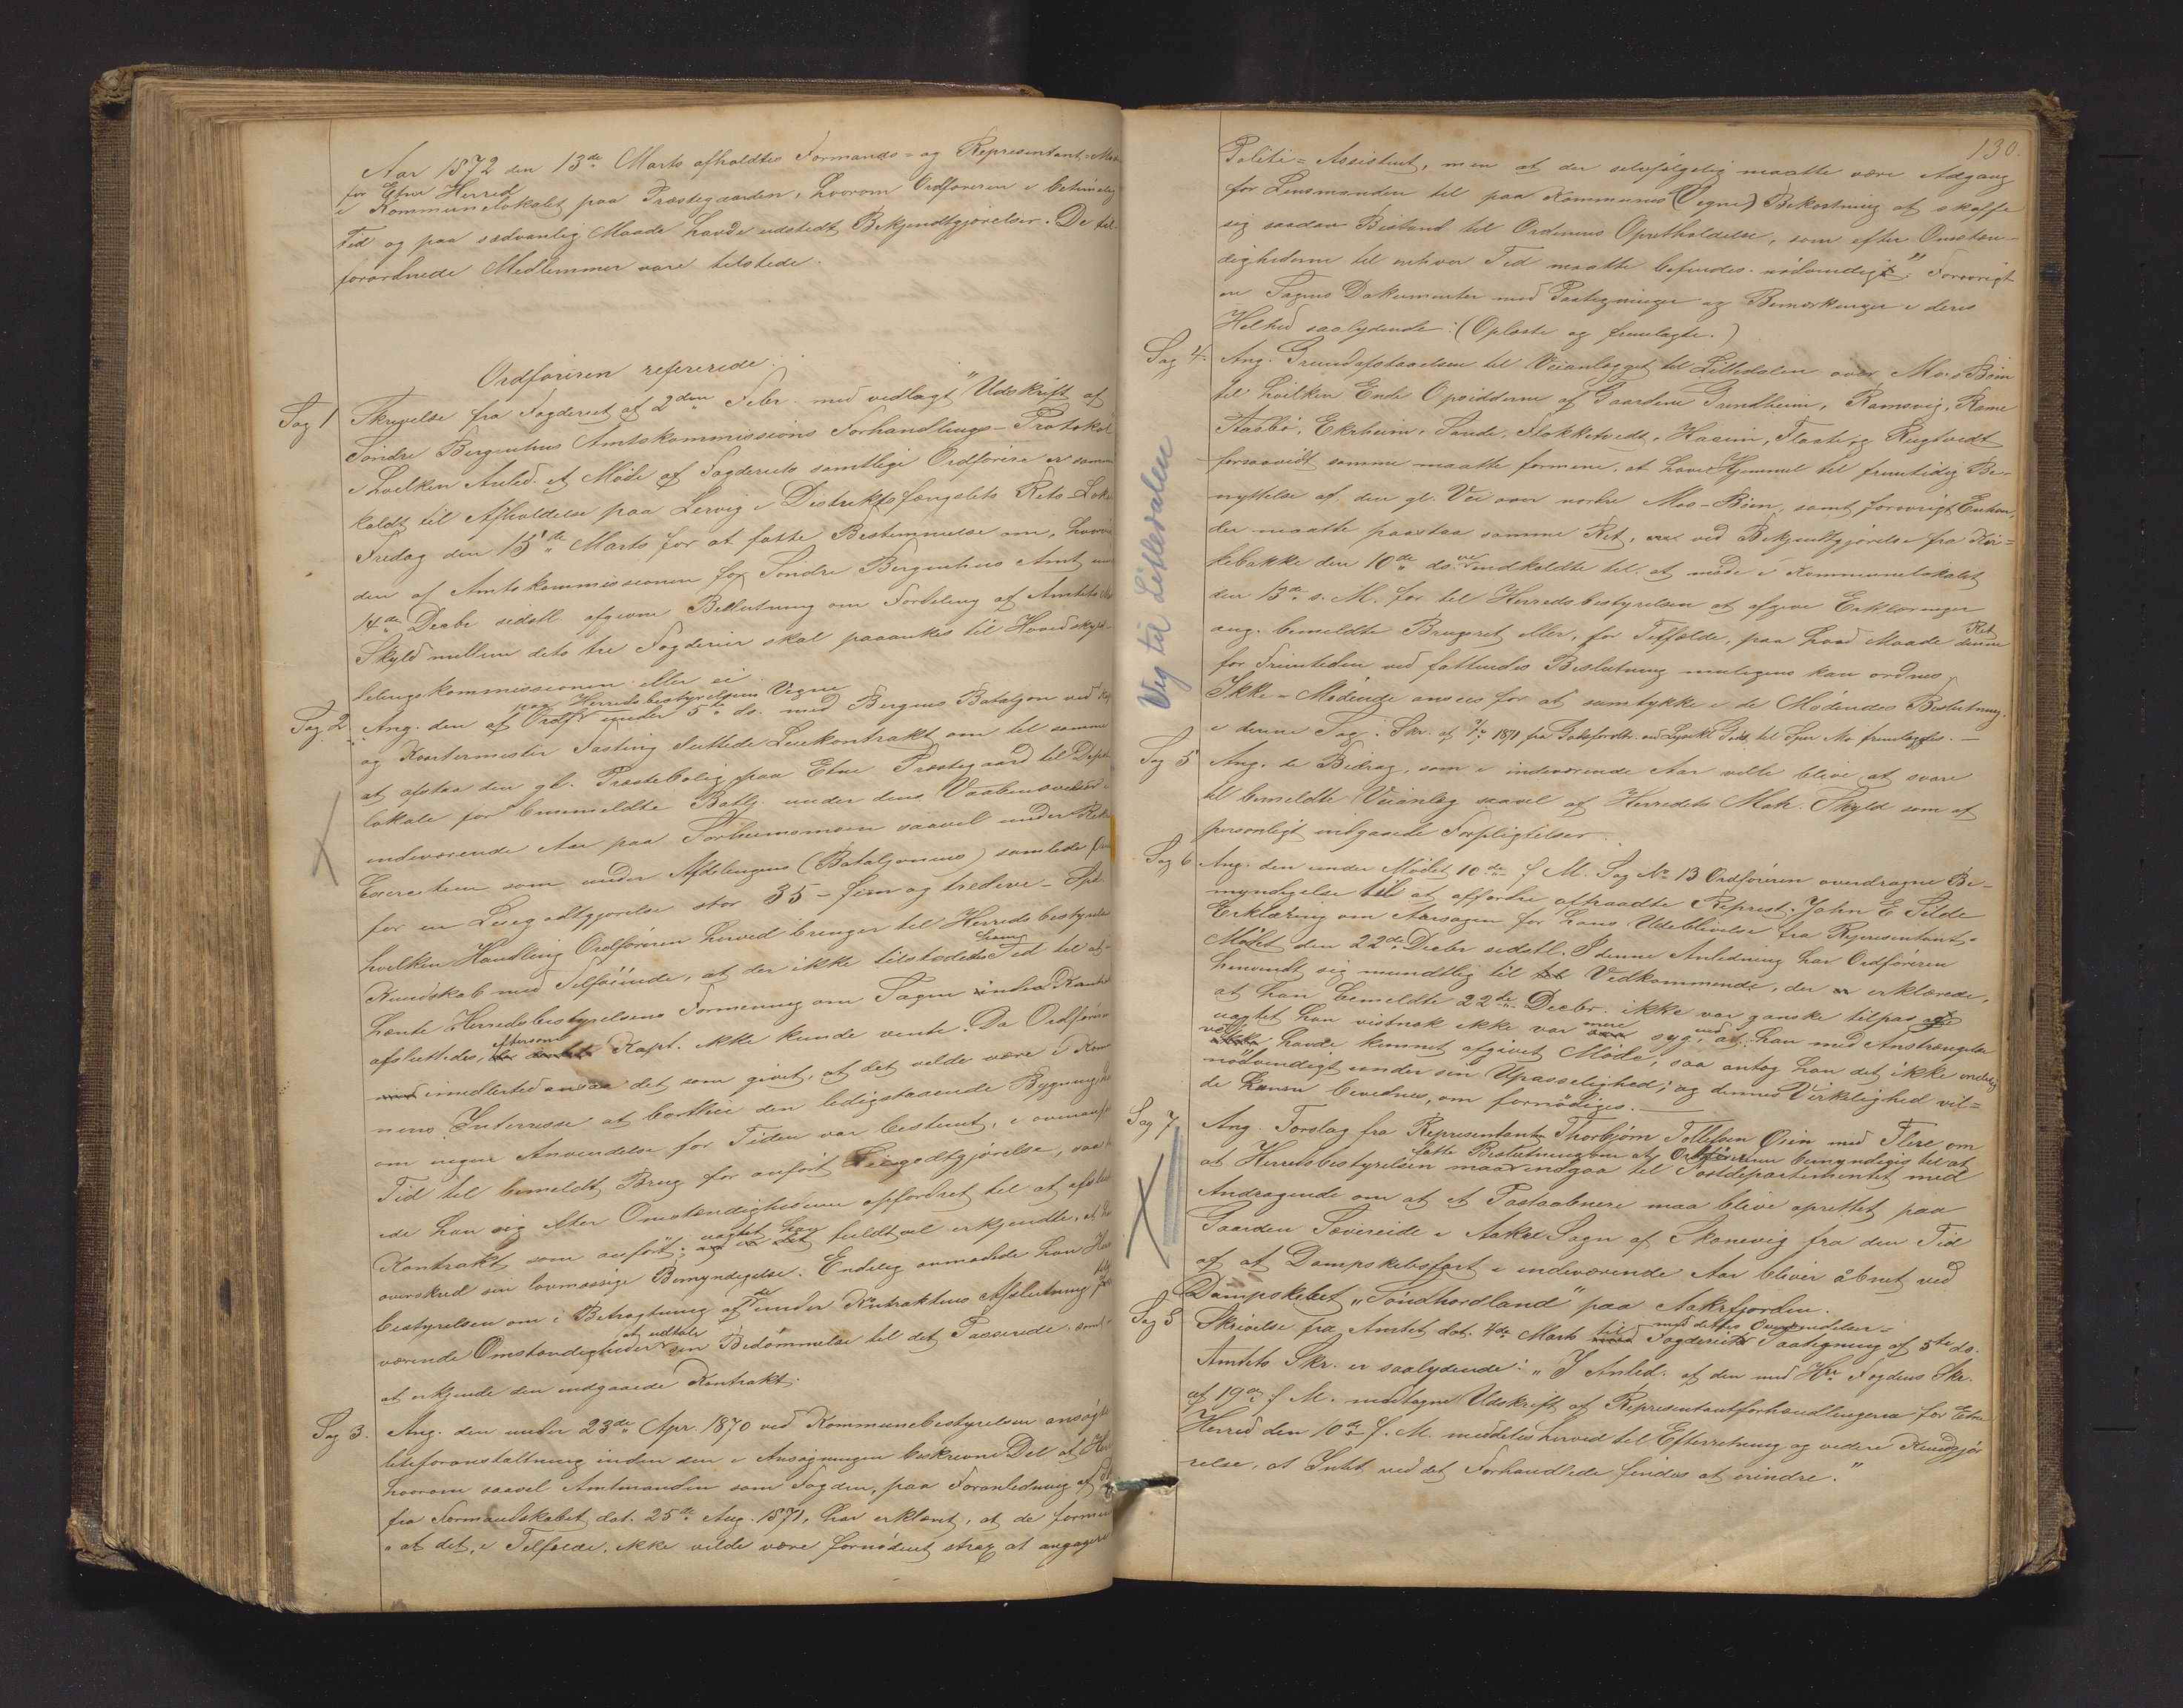 Aar 1872 den 13de Marts afholdtes Formands- og Representant-Møde
for Etne Herred
i Kommunelokalet paa Præstegaarden, hvorom Ordføreren i betimelig
Tid og paa sædvanlig Maade havde udstedt Bekjendtgjørelser. De til-
forordnede Medlemmer vare tilstede.
Ordføreren refererede:
Sag 1 Skrivelse fra Fogderiet af 2den Febr. med vedlagt Udskrift af
Søndre Bergenhus Amtskommissions Forhandlings-Protokol
i hvilken Anled. et Møde af Fogderiets samtlige Ordførere er sammen
kaldt til Afholdelse paa Lervig i Distriktsfængslets Rets-Lokale
Fredag den 15de Marts for at fatte Bestemmelse om, hvorvidt
den af Amtskommissionen for Søndre Bergenhus Amt under
14de Decbr sidstl. afgivne Beslutning om Fordeling af Amtets
Skyld mellem dets tre Fogderier skal paaankes til Hovedskyld-
delingskommissionen eller ei
paa Herredsbestyrelsens Vegne
Sag 2 Ang. den af Ordf. under 5te ds. med Bergens Bataljon ved
og Kvartermester Fasting sluttede Leiekontrakt om til samme
at afstaa den gl. Præstebolig paa Etne Præstegaard til Depot
lokale for bemeldte Batlj. under dens Vaabenøvelser i
indeværende Aar paa Sørheimsmoen saavel under Rekrut
Exercitien som under Afdelingens (Bataljonens) samlede
for en Leiegodtgjørelse stor 35 - fem og tredive - Spd.
hvilken Handling Ordføreren herved bringer til Herredsbestyrelsens
Kundskab med Tilføiende, at der ikke tilstodes ham Tid til at ind-
hente Herredsbestyrelsens Formening om Sagen inden Kontrakt
afsluttedes, eftersom Kapt. ikke kunde vente. Da Ordføreren
imidlertid ansaa det som givet, at det vilde være i Kom-
munens Interesse at bortleie den ledigstaaende Bygning,
om nogen Anvendelse for Tiden var bestemt, i ovenanført
Tid til bemeldt Brug for anført Leiegodtgjørelse, saa
ede han sig efter Omstændighederne opfordret til at afslutte
Kontrakt som anført; uagtet han fuldtvel erkjendte, at han
overskred sin lovmæssige Bemyndigelse. Endelig anmodede han Herreds
bestyrelsen om i Betragtning af de under Kontraktens Afslutning
værende Omstændigheder at udtale sin Bedømmelse til det Passerede samt
at erkjende den indgaaede Kontrakt.
Sag 3. Ang. den under 23de Apr. 1870 ved Kommunebestyrelsen ansøgte
litiforanstaltning inden den i Ansøgningen beskrevne Del af Her
hvorom saavel Amtmanden som Fogden, paa Foranledning af
fra Formandskabet dat. 25de Aug. 1871, har erklæret, at de formene
"at det, i Tilfælde, ikke vilde være fornødent strax at angagere
130.
Politi-Assistent, men at der selvfølgelig maatte være Adgang
for Lensmanden til paa Kommunens (Vegne) Bekostning at skaffe
sig saadan Bistand til Ordenens Opretholdelse, som efter Omstæn-
dighederne til enhver Tid maatte befindes nødvendigt". Forøvrigt
er Sagens Dokumenter med Paategninger og Bemærkninger i deres
Helhed saalydende: (Oplæste og fremlagte.)
Veg til Litledalen
Sag 4. Ang. Grundafstaaelsen til Veianlægget til Litledalen over Mo-Bøen
til hvilken Ende Opsidderne af Gaardene Grindheim, Ramsvig, Rame
Aasbø, Ekrheim, Sande, Flokketvedt, Haaim, Flaate, og Rugtvedt
forsaavidt samme maatte formene, at have Hjemmel til fremtidig Be-
nyttelse af den gl. Vei over nordre Mos-Bøen, samt forøvrigt Enhver,
der maatte paastaa samme Ret, ved Bekjendtgjørelse fra Kir-
kebakke den 10de ds. ere indkaldte til at møde i Kommunelokalet
den 13de s. M. for til Herredsbestyrelsen at afgive Erklæringer
ang. bemeldte Brugsret eller, for Tilfælde, paa hvad Maade denne Ret
for Fremtiden ved fattendes Beslutning muligens kan ordnes
Ikke-Mødende ansees for at samtykke i de Mødendes Beslutning
i denne Sag. Skr. af 1871 fra Godsforvlt. ved Lysekl. Gods til Spr. Mo fremlagdes. —
Sag 5 Ang. de Bidrag, som i indeværende Aar ville blive at svare
til bemeldte Veianlæg saavel af Herredets Matr. Skyld som af
personligt indgaaede Forpligtelser.
Sag 6 Ang. den under Mødet 10de f. M. Sag No 13 Ordføreren overdragne Be-
myndigelse til at affordre aftraadte Represt. John E Silde
Erklæring om Aarsagen for hans Udeblivelse fra Representant-
Mødet den 22de Decbr sidstl. I denne Anledning har Ordføreren
henvendt sig mundtlig til Vedkommende, der erklærede,
at han bemeldte 22de Decbr. ikke var ganske tilpas og
uagtet han vistnok ikke var mere syg, end at han med Anstrængelse
havde kunnet afgivet Møde, saa antog han det ikke endelig
nødvendigt under sin Upasselighed; og dennes Virkelighed vil-
de kunne bevidnes, om fornødiges. —
Sag 7 Ang. Forslag fra Representanten Thorbjørn Tollefsen Øien med Flere om
fatte Beslutning om at Ordføreren bemyndiges til at
at Herredsbestyrelsen maa indgaa til Postdepartementet med
Andragende om at et Postaabneri maa blive oprettet paa
Gaarden Sævereide i Aakre Sogn af Skonevig fra den Tid
af at Dampskibsfart i indeværende Aar bliver åbnet ved
Dampskibet „Søndhordland" paa Aakrefjorden.
med dettes Oversendelses-
Sag 8 Skrivelse fra Amtet dat. 4de Marts til Fogderiet Paategning af 5te ds.
Amtets Skr. er saalydende: „I Anled. af den med Hr. Fogdens Skr.
af 19de f. M. modtagne Udskrift af Representantforhandlingerne for Etne
Herred den 10de f. M. meddeles herved til Efterretning og videre Kundgjø-
relse, at Intet ved det Forhandlede findes at erindre."